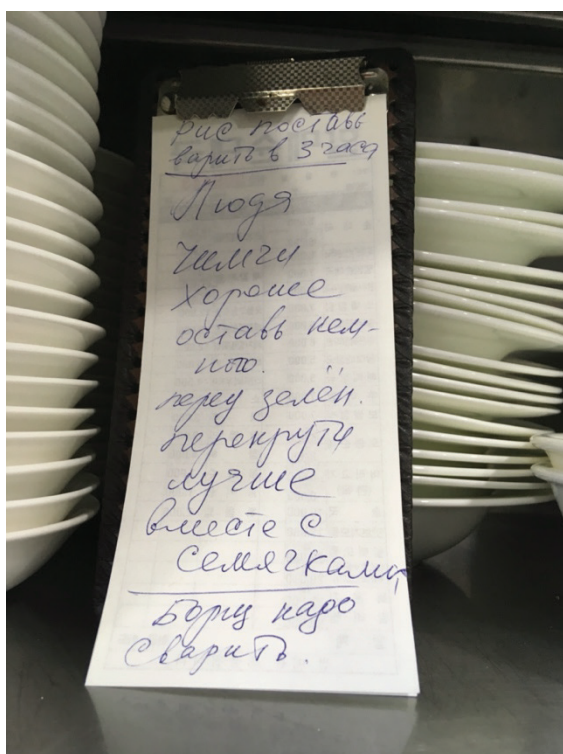 Рис поставь
варить в 3 часа
Людя
Чимчи
хорошие
оставь нем-
ного.
перец зелён.
перекрути
лучше
вместе с
семячками
Борщ надо
сварить.